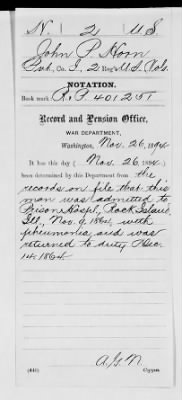 N. 2 U S
John P. Horn
Pvt. Co. I, 2 Reg't U.S. Vols.
NOTATION.
Book mark R. P. 401251
Record and Pension Office,
WAR DEPARTMENT,
Washington, Nov. 26, 1894
It has this day (Nov. 26, 1894)
been determined by this Department from the
records on file that this
man was admitted to
Prison Hospl, Rock Island,
Ill, Nov. 9, 1864, with
pneumonia, and was
returned to duty Nov.
14, 1864
A.G.N.
(441) Copyist.